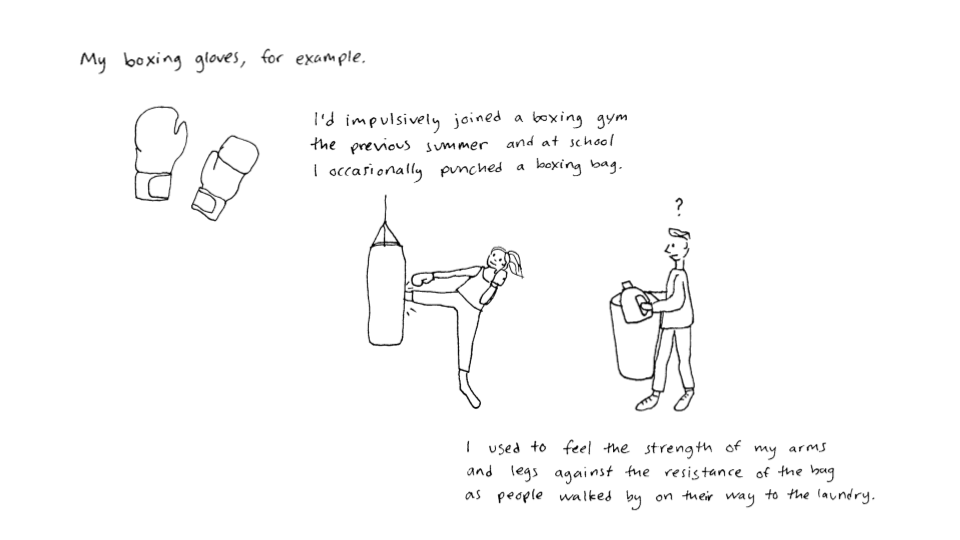 My boxing gloves, for example.
I'd impulsively joined a boxing gym
the previous summer and at school
I occasionally punched a boxing bag.
?
I used to feel the strength of my arms
and legs against the resistance of the bag
as people walked by on their way to the laundry.